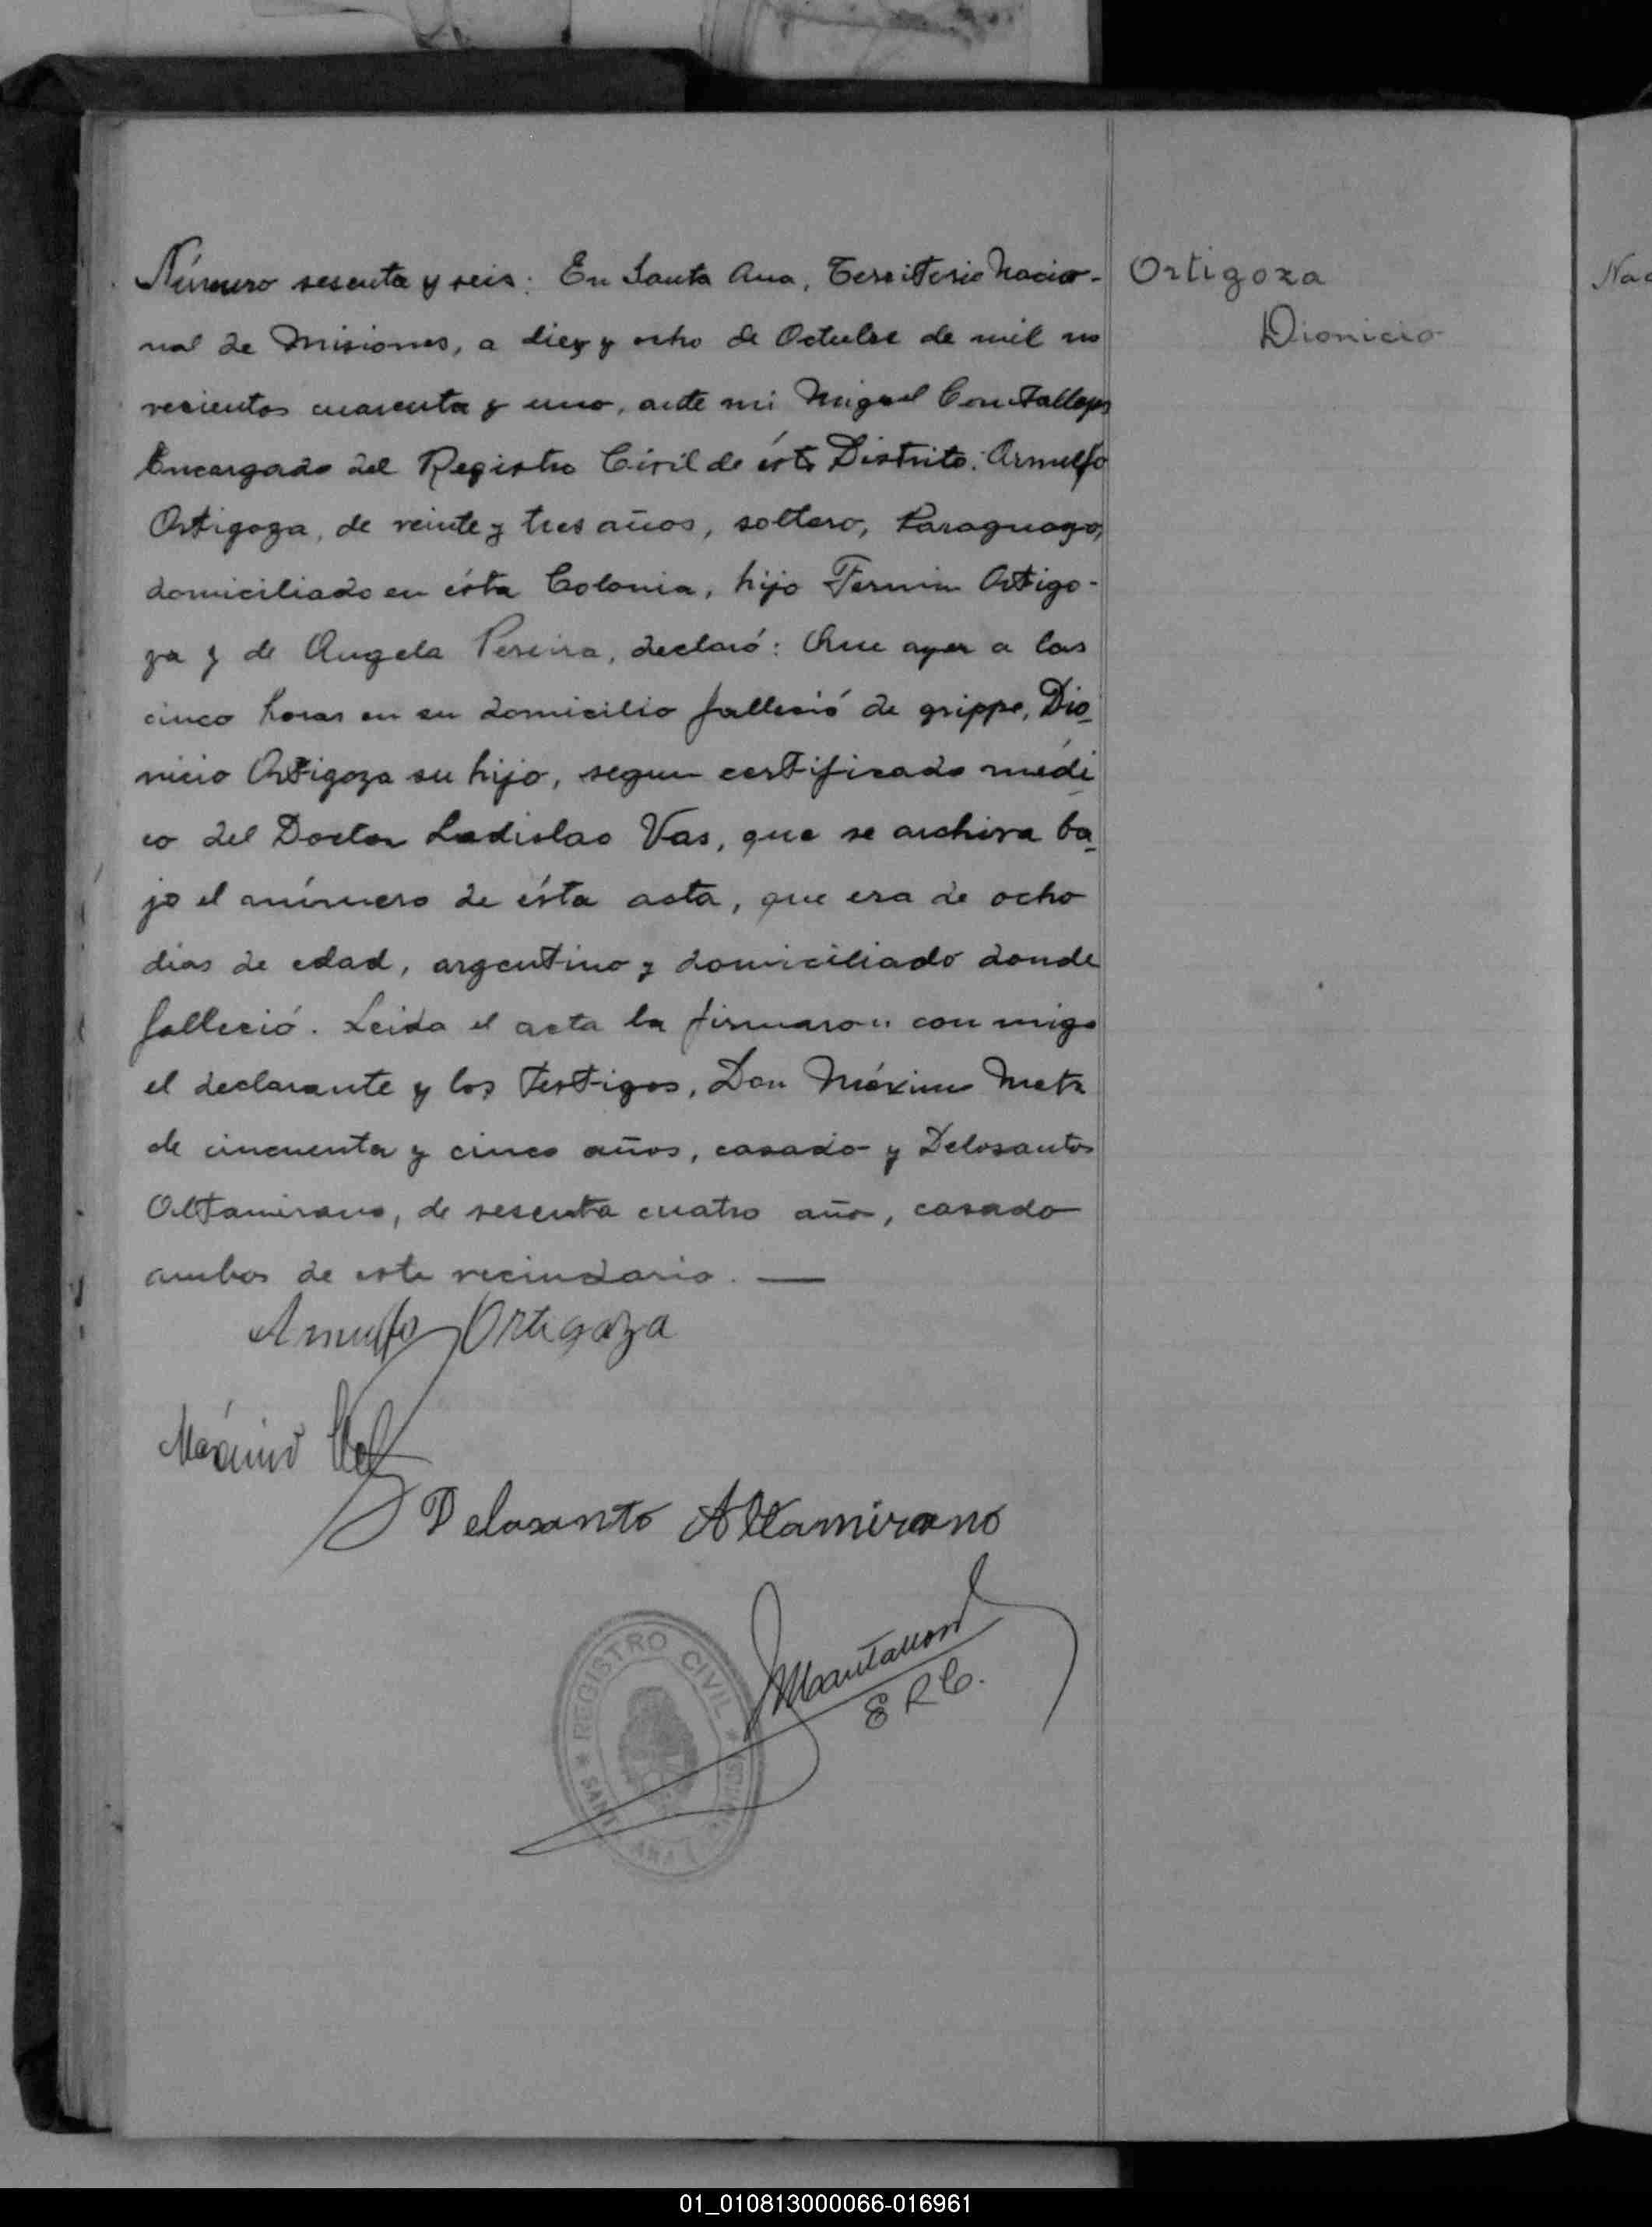 Número sesenta y seis: En Santa Ana, Territorio Nacio-
nal de Misiones, a diez y ocho de Octubre de mil no
vecientos cuarenta y uno, ante mi Miguel
Encargado del Registro Civil de éste Distrito: Arnulfo
Ortigoza, de veinte y tres años, soltero, Paraguayo,
domiciliado en ésta Colonia, hijo Fermin Ortigo-
za y de Angela Pereira, declaró: Que ayer a las
cinco horas en su domicilio falleció de grippe, Dio
nicio Ortigoza su hijo, segun certificado médi
co del Doctor Ladislao Vas, que se archiva ba
jo el número de ésta acta, que era de ocho
dias de edad, argentino y domiciliado donde
falleció. Leida el acta la firmaron con migo
el declarante y los testigos, Don Máximo Metz
de cincuenta y cinco años, casado y Delosantos
Altamirano, de sesenta cuatro año, casado
ambos de este vecindario. —
Arnulfo Ortigoza
Máximo
Delosanto Altamirano
E R C.
REGISTRO CIVIL
SANTA ANA
Ortigoza
Dionicio
Nac
01_010813000066-016961